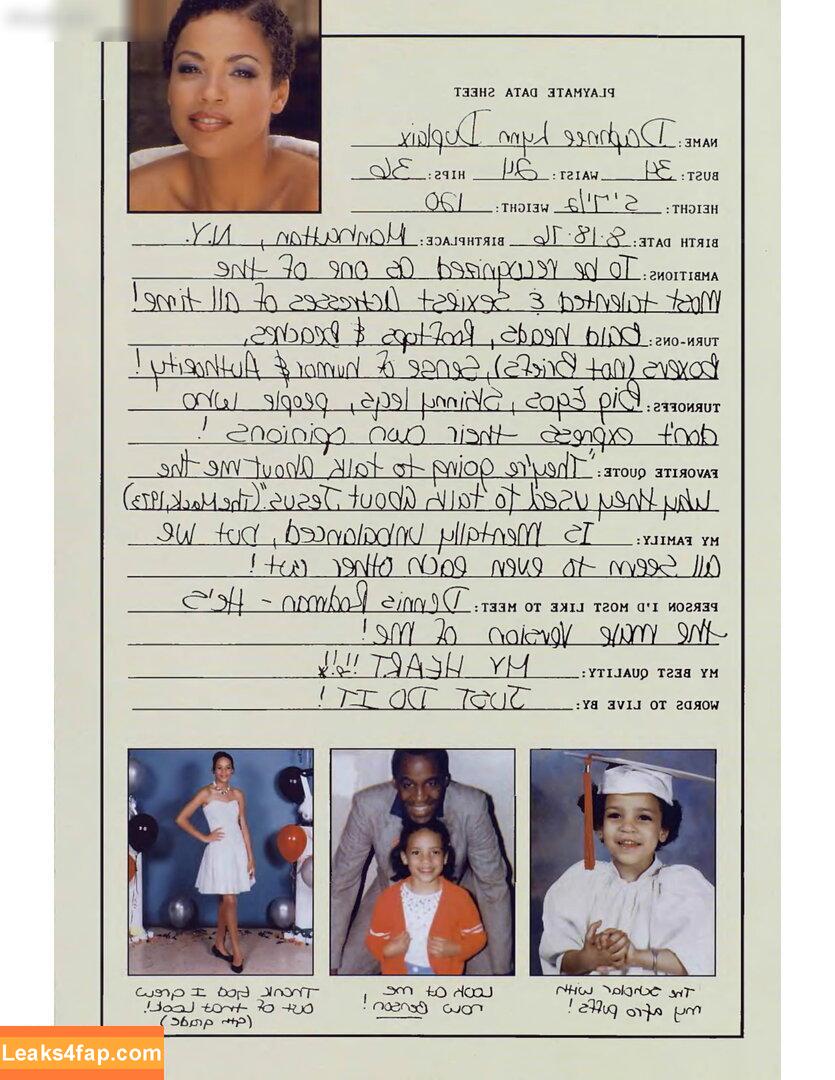 PLAYMATE DATA SHEET
NAME: Daphnee Lynn Duplaix
BUST: 34 WAIST: 24 HIPS: 36
HEIGHT: 5'7 1/2 WEIGHT: 120
BIRTH DATE: 8·18·76 BIRTHPLACE: Manhattan, N.Y.
AMBITIONS: To be recognized as one of the
Most talented & sexiest Actresses of all time!
TURN-ONS: Bald heads, Rooftops & Beaches,
Boxers (not Briefs), sense of humor & Authority!
TURNOFFS: Big Egos, Skinny legs, people who
don't express their own opinions!
FAVORITE QUOTE: "They're going to talk about me the
way they used to talk about Jesus." (The Mack, 1973)
MY FAMILY: Is Mentally unbalanced, but we
all seem to even each other out!
PERSON I'D MOST LIKE TO MEET: Dennis Rodman - He's
the male version of me!
MY BEST QUALITY: MY HEART!!!
WORDS TO LIVE BY: JUST DO IT!
The scholar with
my afro puffs!
Look at me
now Benson!
Thank God I grew
out of that Look!
(9th grade)
Leaks4fap.com